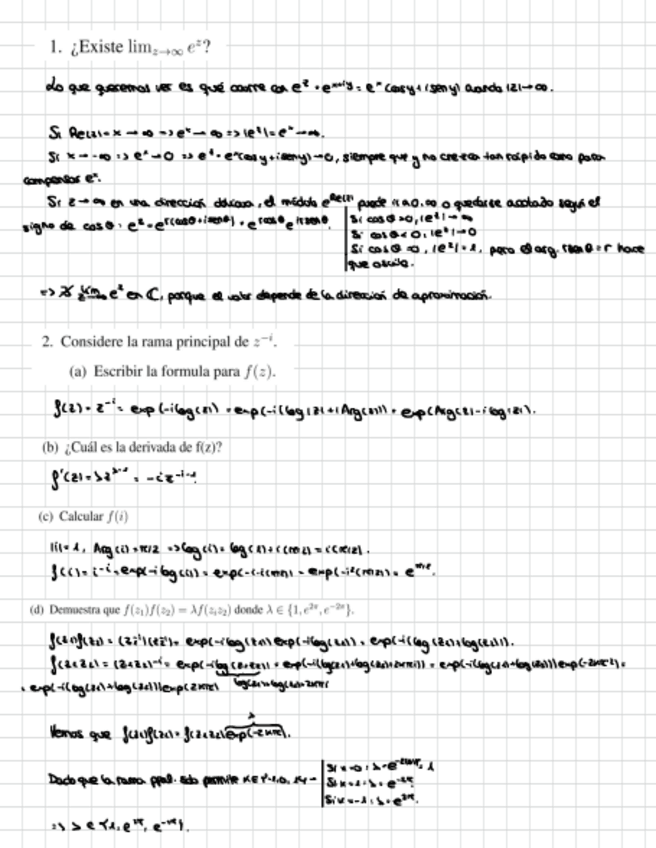 1. ¿Existe lim_{z→∞} e^z?
Lo que queremos ver es qué ocurre con e^z = e^{x+iy} = e^x (cos y + i sen y) cuando |z| → ∞.
Si Re(z) = x → ∞ => e^x → ∞ => |e^z| = e^x → ∞.
Si x → -∞ => e^x → 0 => e^z = e^x(cos y + i sen y) → 0, siempre que y no crezca tan rápido como para
compensar e^x.
Si z → ∞ en una dirección, el módulo e^{Re(z)} puede ir a 0, ∞ o quedarse acotado según el
signo de cos θ: e^z = e^{r(cos θ + i sen θ)} = e^{r cos θ} e^{i r sen θ}.
Si cos θ > 0, |e^z| → ∞
Si cos θ < 0, |e^z| → 0
Si cos θ = 0, |e^z| = 1, pero el arg. r sen θ = r hace
que oscile.
=> ∄ lim_{z→∞} e^z en ℂ, porque el valor depende de la dirección de aproximación.
2. Considere la rama principal de z^{-i}.
(a) Escribir la formula para f(z).
f(z) = z^{-i} = exp(-i log(z)) = exp(-i(log|z| + i Arg(z))) = exp(Arg(z) - i log|z|).
(b) ¿Cuál es la derivada de f(z)?
f'(z) = λz^{λ-1} = -i z^{-i-1}.
(c) Calcular f(i)
|i| = 1, Arg(i) = π/2 => log(i) = log(1) + i(π/2) = i(π/2).
f(i) = i^{-i} = exp(-i log(i)) = exp(-i·i(π/2)) = exp(-i²(π/2)) = e^{π/2}.
(d) Demuestra que f(z₁)f(z₂) = λf(z₁z₂) donde λ ∈ {1, e^{2π}, e^{-2π}}.
f(z₁)f(z₂) = (z₁^{-i})(z₂^{-i}) = exp(-i log(z₁)) exp(-i log(z₂)) = exp(-i(log(z₁) + log(z₂))).
f(z₁z₂) = (z₁z₂)^{-i} = exp(-i log(z₁z₂)) = exp(-i(log(z₁) + log(z₂) + 2kπi)) = exp(-i(log(z₁) + log(z₂))) exp(-2kπi²) =
= exp(-i(log(z₁) + log(z₂))) exp(2kπ)
log(z₁) + log(z₂) + 2kπi
λ
Vemos que f(z₁)f(z₂) = f(z₁z₂) exp(-2kπ).
Dado que la rama ppal. solo permite k ∈ {-1, 0, 1} →
Si k = 0: λ = e^{-2·0·π} = 1
Si k = 1: λ = e^{-2π}
Si k = -1: λ = e^{2π}.
=> λ ∈ {1, e^{2π}, e^{-2π}}.